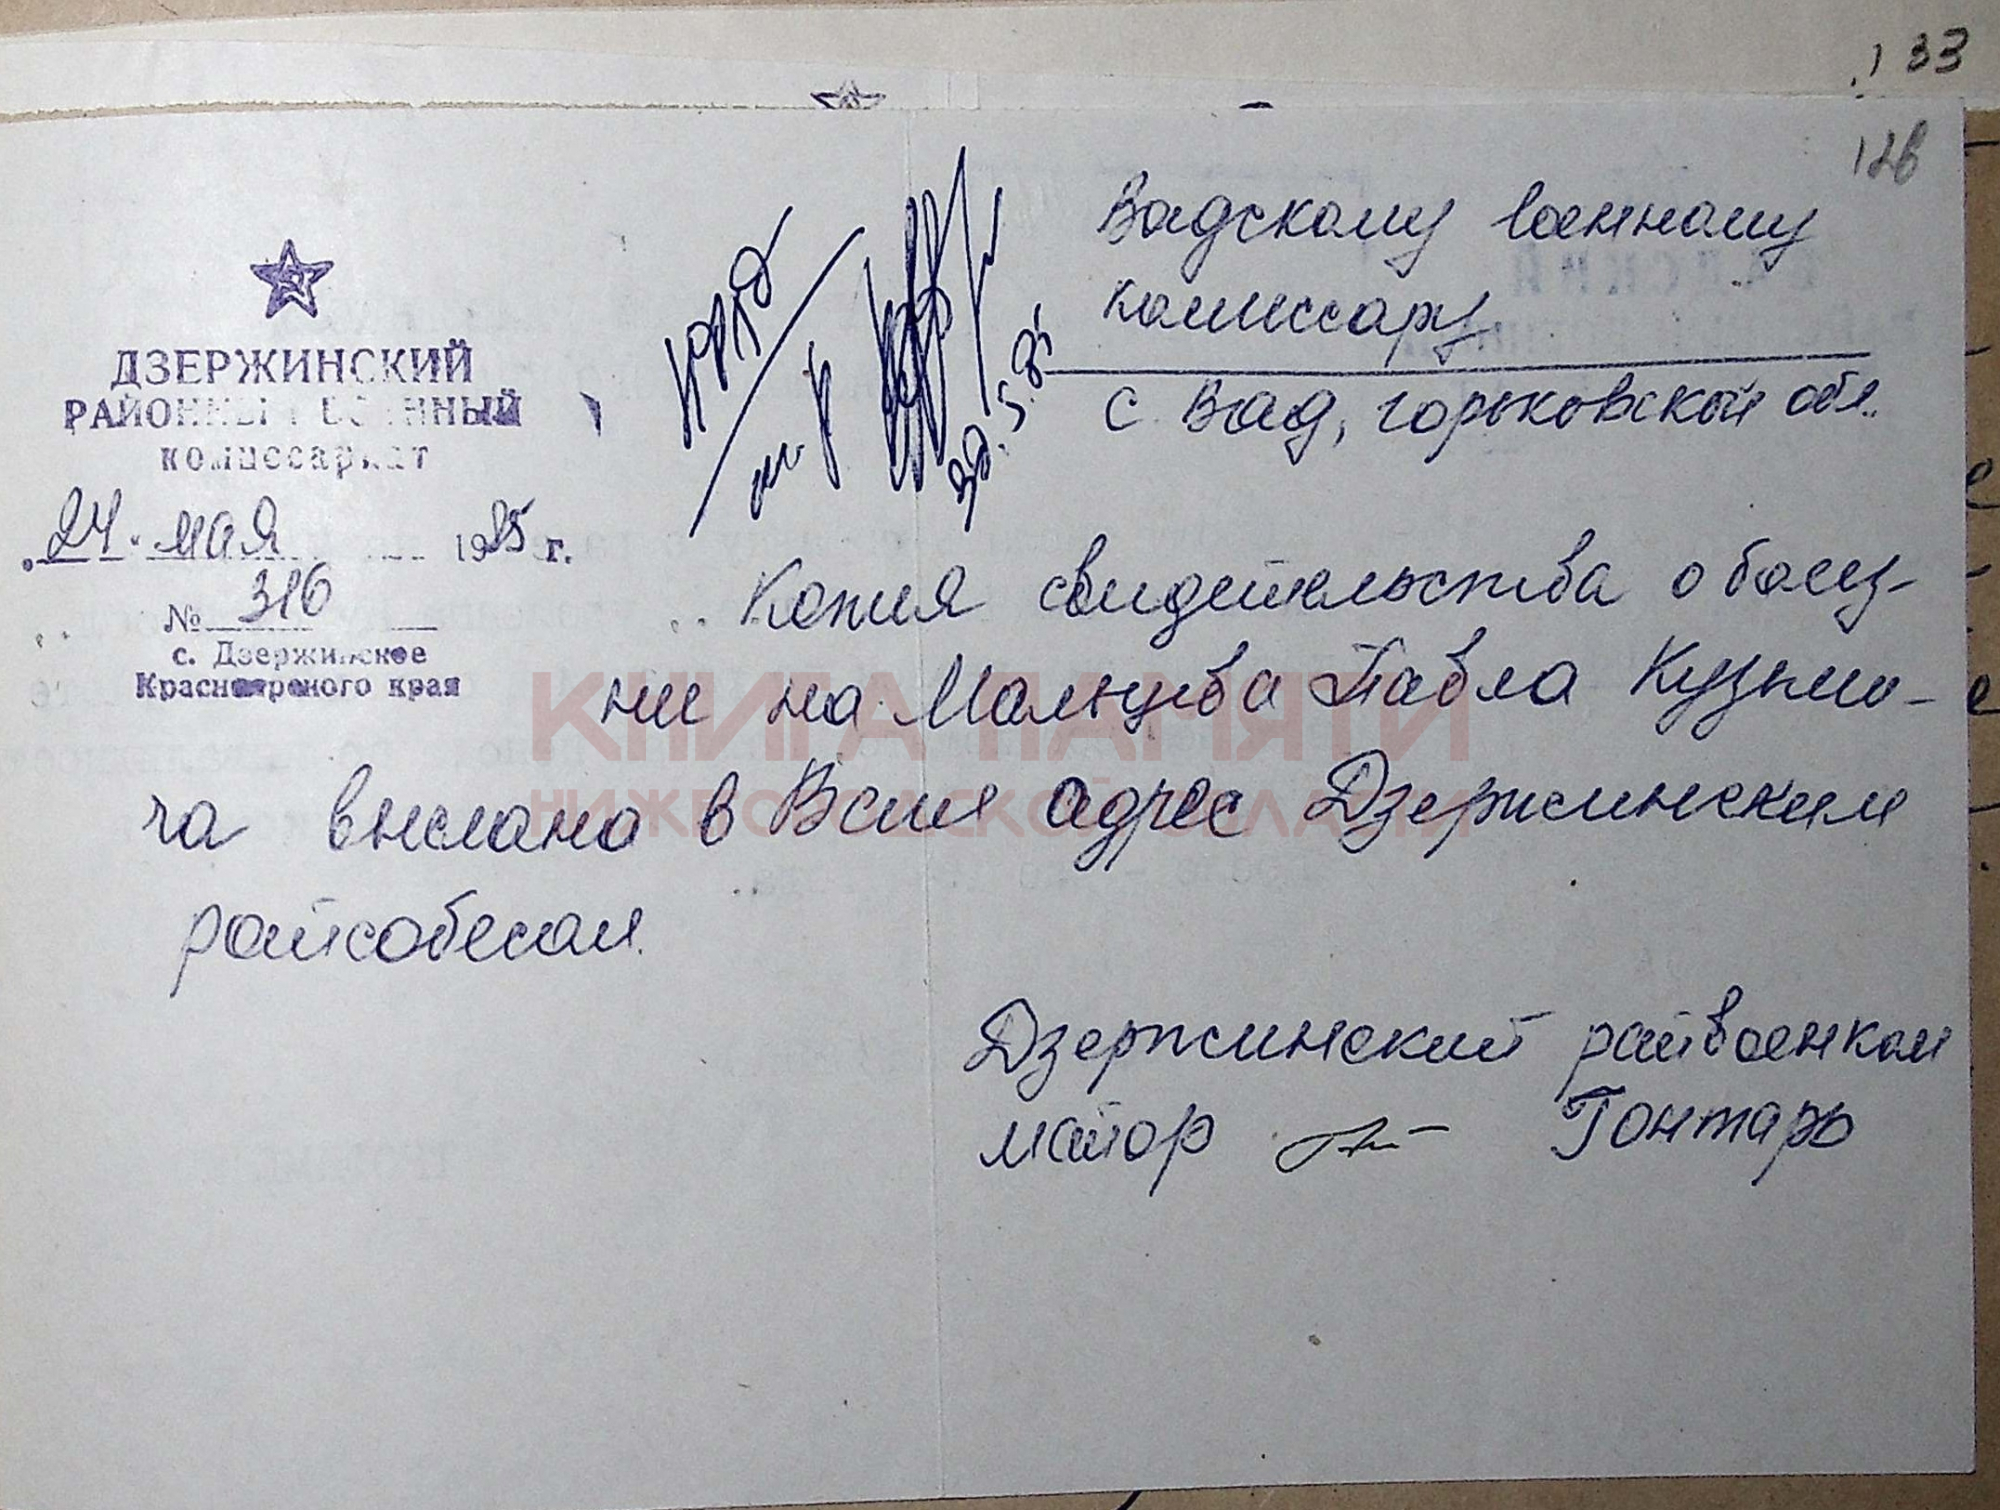 133
126
ДЗЕРЖИНСКИЙ
РАЙОННЫЙ ВОЕННЫЙ
комиссариат
„24“ мая 1985 г.
№ 316
с. Дзержинское
Красноярского края
30.5.85
Вадскому военному
комиссару
с Вад, горьковской обл.
Копия свидетельства о болез-
ни на Мальцева Павла Кузьми-
ча выслана в Ваш адрес Дзержинским
райсобесом.
Дзержинский райвоенком
майор Гонтарь
КНИГА ПАМЯТИ
НИЖЕГОРОДСКОЙ ОБЛАСТИ